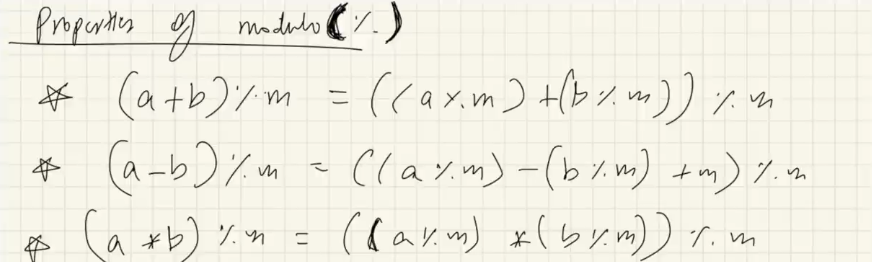 Properties of modulo (%)
☆ (a+b)%m = ((a%m)+(b%m))%m
☆ (a-b)%m = ((a%m)-(b%m)+m)%m
☆ (a*b)%m = ((a%m)*(b%m))%m